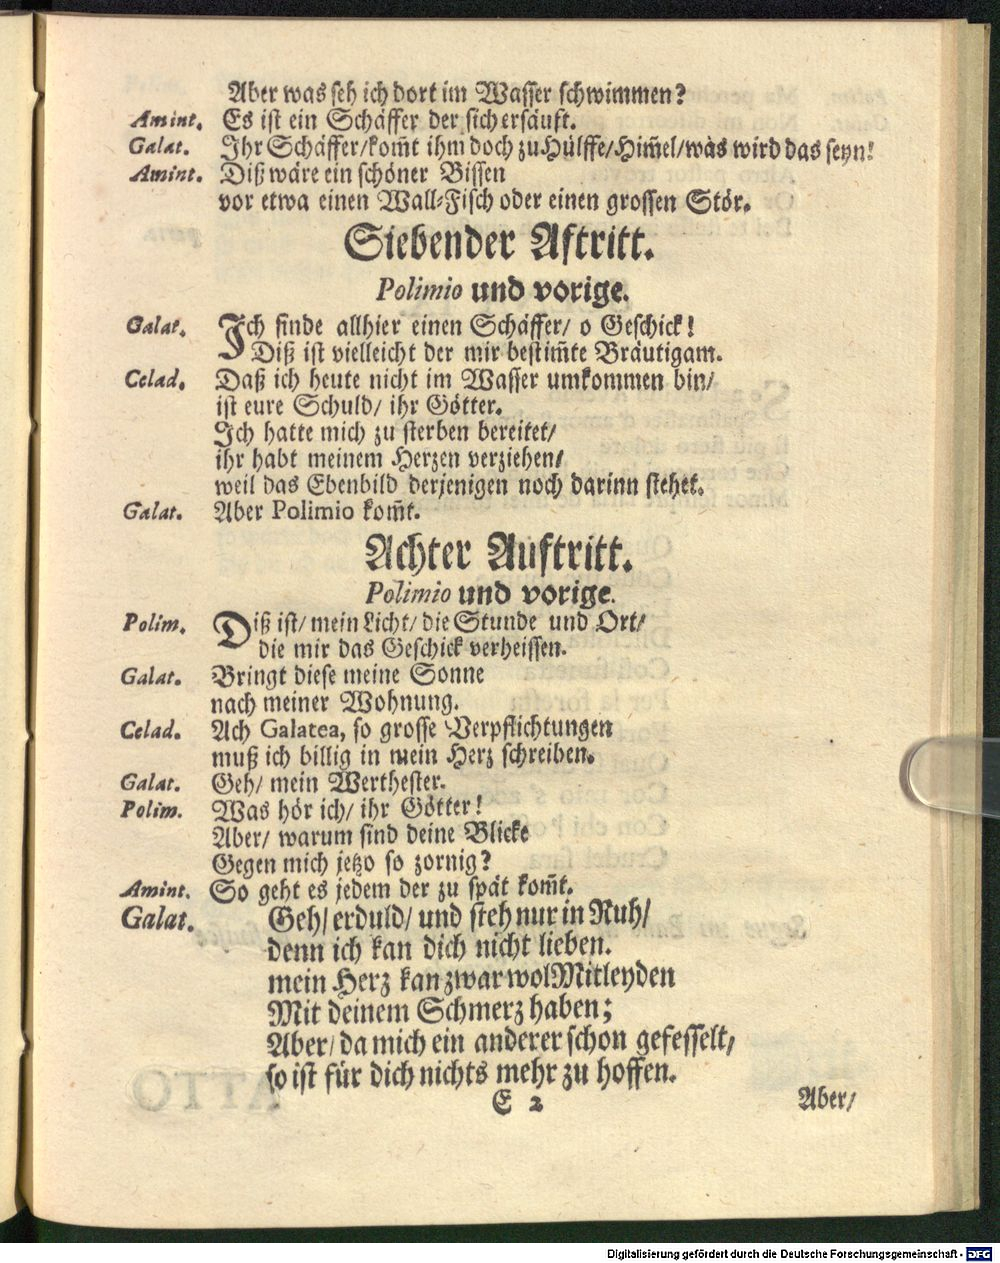 Aber was seh ich dort im Wasser schwimmen?
Amint. Es ist ein Schäffer der sich ersäuft.
Galat. Ihr Schäffer/kom̃t ihm doch zu Hülffe/Him̃el/was wird das seyn!
Amint. Diß wäre ein schöner Bissen
vor etwa einen Wall-Fisch oder einen grossen Stör.
Siebender Aftritt.
Polimio und vorige.
Galat. Ich finde allhier einen Schäffer/ o Geschick!
Diß ist vielleicht der mir bestim̃te Bräutigam.
Celad. Daß ich heute nicht im Wasser umkommen bin/
ist eure Schuld/ ihr Götter.
Ich hatte mich zu sterben bereitet/
ihr habt meinem Herzen verziehen/
weil das Ebenbild derjenigen noch darinn stehet.
Galat. Aber Polimio kom̃t.
Achter Auftritt.
Polimio und vorige.
Polim. Diß ist/ mein Licht/ die Stunde und Ort/
die mir das Geschick verheissen.
Galat. Bringt diese meine Sonne
nach meiner Wohnung.
Celad. Ach Galatea, so grosse Verpflichtungen
muß ich billig in mein Herz schreiben.
Galat. Geh/ mein Werthester.
Polim. Was hör ich/ ihr Götter!
Aber/ warum sind deine Blicke
Gegen mich jetzo so zornig?
Amint. So geht es jedem der zu spät kom̃t.
Galat. Geh/ erduld/ und steh nur in Ruh/
denn ich kan dich nicht lieben.
mein Herz kan zwar wol Mitleyden
Mit deinem Schmerz haben;
Aber/ da mich ein anderer schon gefesselt/
so ist für dich nichts mehr zu hoffen.
E 2 Aber/
Digitalisierung gefördert durch die Deutsche Forschungsgemeinschaft - DFG